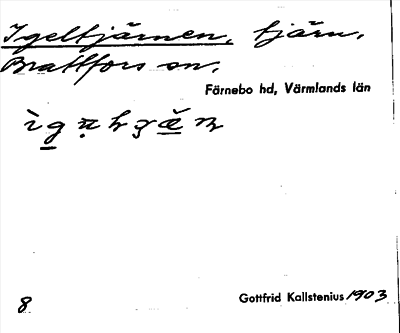 Igeltjärnen, tjärn,
Brattfors sn.
Färnebo hd, Värmlands län
8 Gottfrid Kallstenius 1903